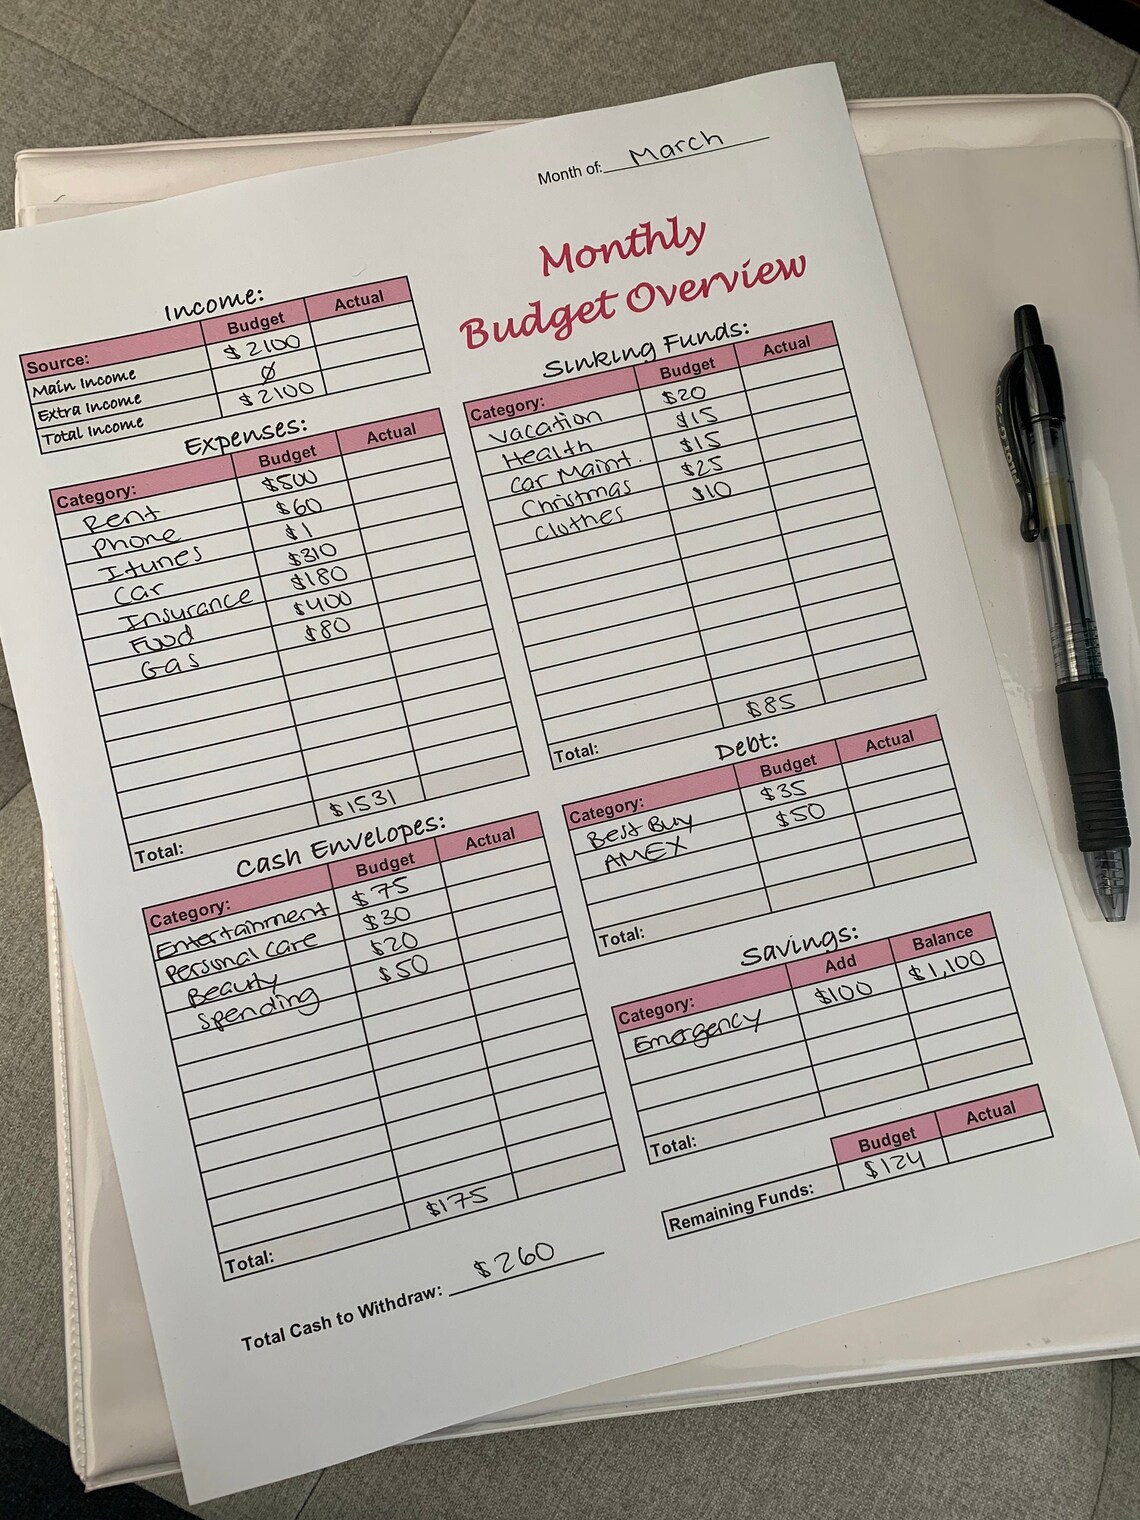 Month of: March
Monthly
Budget Overview
Income:
Source: Budget Actual
Main Income $2100
Extra Income Ø
Total Income $2100
Expenses:
Category: Budget Actual
Rent $500
Phone $60
Itunes $1
Car $310
Insurance $180
Food $400
Gas $80
Total: $1531
Cash Envelopes:
Category: Budget Actual
Entertainment $75
Personal Care $30
Beauty $20
Spending $50
Total: $175
Total Cash to Withdraw: $260
Sinking Funds:
Category: Budget Actual
Vacation $20
Health $15
Car Maint. $15
Christmas $25
Clothes $10
Total: $85
Debt:
Category: Budget Actual
Best Buy $35
AMEX $50
Total:
Savings:
Category: Add Balance
Emergency $100 $1,100
Total:
Budget Actual
Remaining Funds: $124